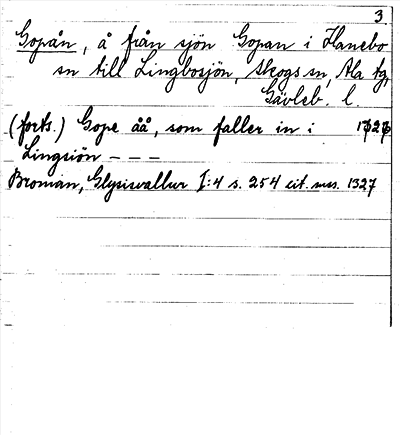 3
Gopån, å från sjön Gopan i Hanebo
sn till Lingbosjön, Skogs sn, Ala tg,
Gävleb. l.
(forts.) Gope åå, som faller in i
Lingsiön - - -
Broman, Glysisvallur I:4 s. 254 cit. mss. 1327